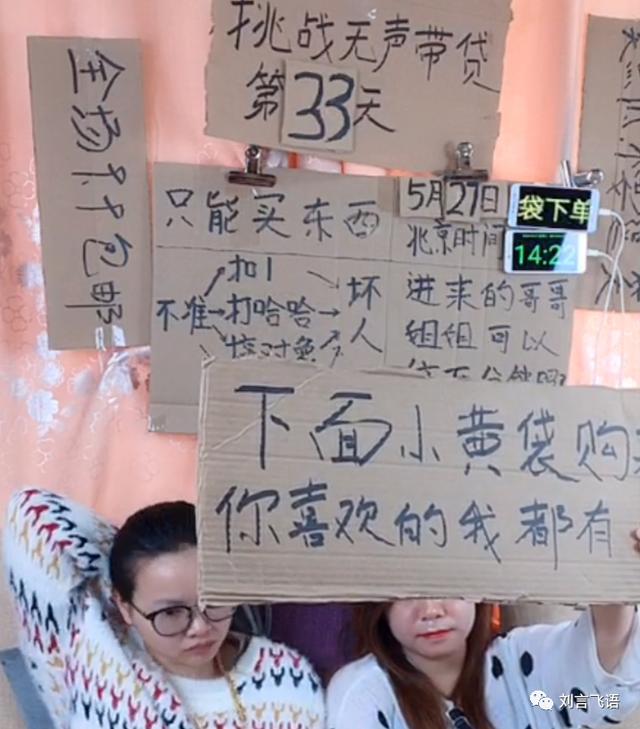 挑战无声带贷
第33天
全场9.9包邮
只能买东西
不准
扣1
打哈哈
坏人
5月27日
北京时间
进来的哥哥
姐姐可以
袋下单
14:22
下面小黄袋购
你喜欢的我都有
刘言飞语